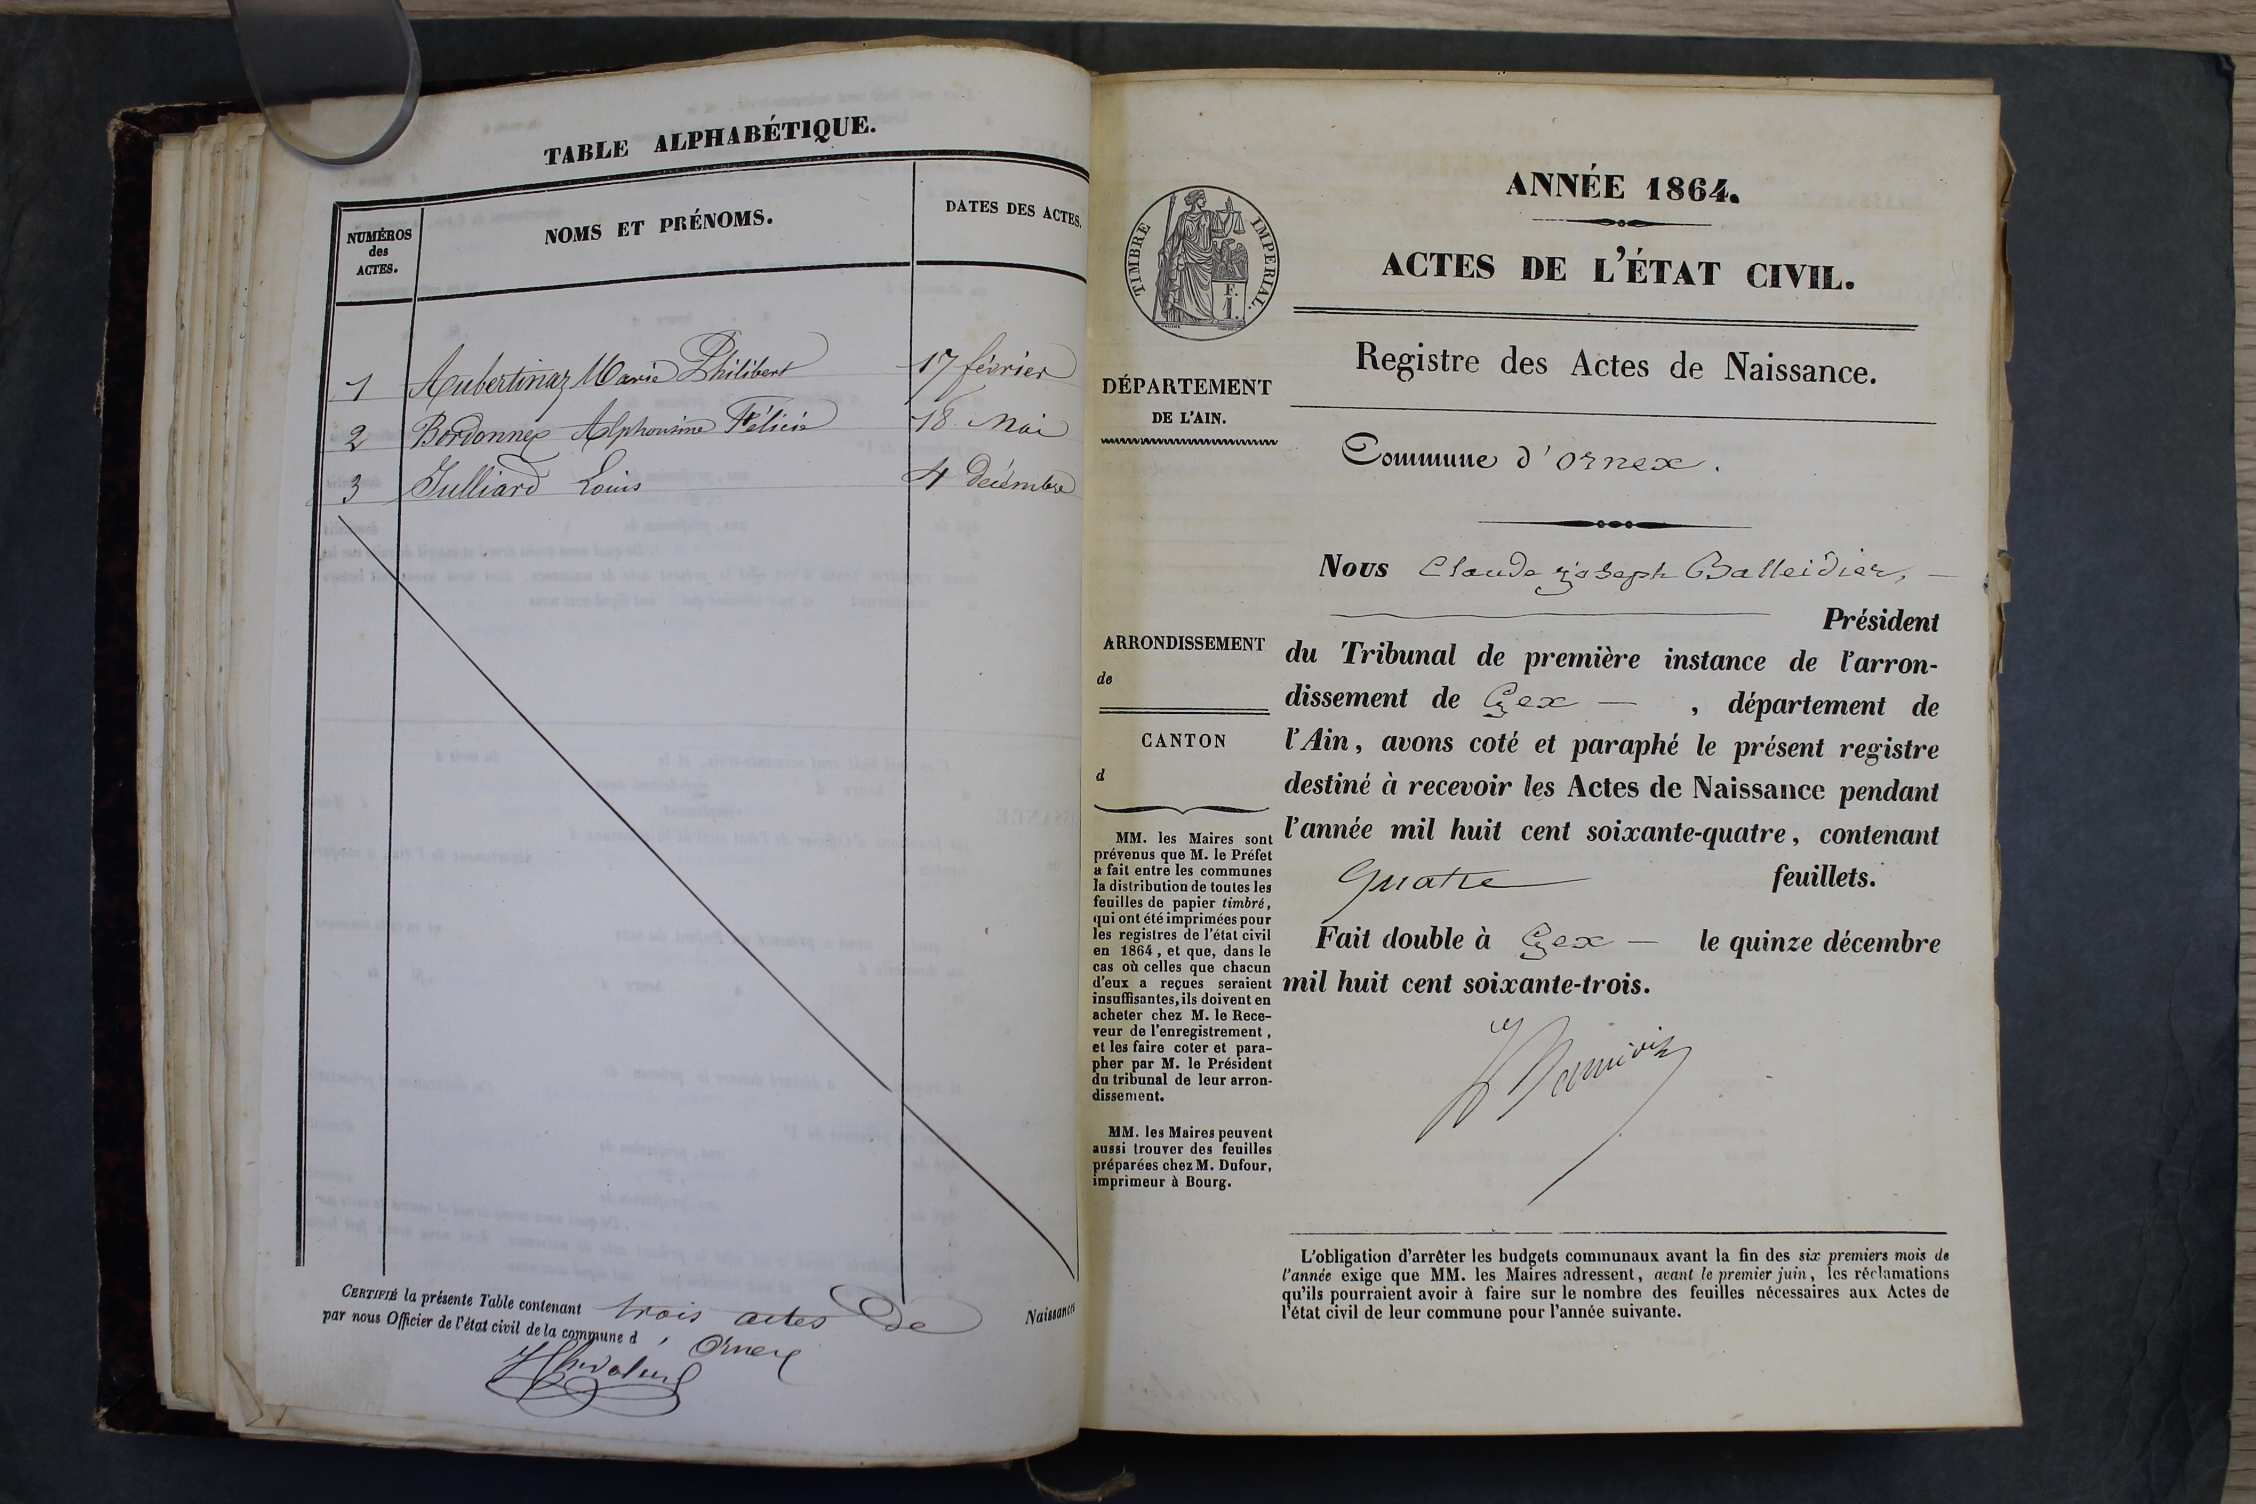 TABLE ALPHABÉTIQUE.
NUMÉROS des ACTES.
NOMS ET PRÉNOMS.
DATES DES ACTES.
1 Aubertinaz Marie Philibert 17 février
2 Bordonnex Alphonsine Félicie 18 Mai
3 Julliard Louis 4 Décembre
CERTIFIÉ la présente Table contenant trois actes de Naissances
par nous Officier de l'état civil de la commune d'Ornex
TIMBRE IMPERIAL.
F.
1.
DÉPARTEMENT
DE L'AIN.
ARRONDISSEMENT
de
CANTON
d
MM. les Maires sont
prévenus que M. le Préfet
a fait entre les communes
la distribution de toutes les
feuilles de papier timbré,
qui ont été imprimées pour
les registres de l'état civil
en 1864, et que, dans le
cas où celles que chacun
d'eux a reçues seraient
insuffisantes, ils doivent en
acheter chez M. le Rece-
veur de l'enregistrement,
et les faire coter et para-
pher par M. le Président
du tribunal de leur arron-
dissement.
MM. les Maires peuvent
aussi trouver des feuilles
préparées chez M. Dufour,
imprimeur à Bourg.
ANNÉE 1864.
ACTES DE L'ÉTAT CIVIL.
Registre des Actes de Naissance.
Commune d'Ornex.
Nous Claude joseph Balleidier,
Président
du Tribunal de première instance de l'arron-
dissement de Gex — , département de
l'Ain, avons coté et paraphé le présent registre
destiné à recevoir les Actes de Naissance pendant
l'année mil huit cent soixante-quatre, contenant
quatre feuillets.
Fait double à Gex — le quinze décembre
mil huit cent soixante-trois.
L'obligation d'arrêter les budgets communaux avant la fin des six premiers mois de
l'année exige que MM. les Maires adressent, avant le premier juin, les réclamations
qu'ils pourraient avoir à faire sur le nombre des feuilles nécessaires aux Actes de
l'état civil de leur commune pour l'année suivante.